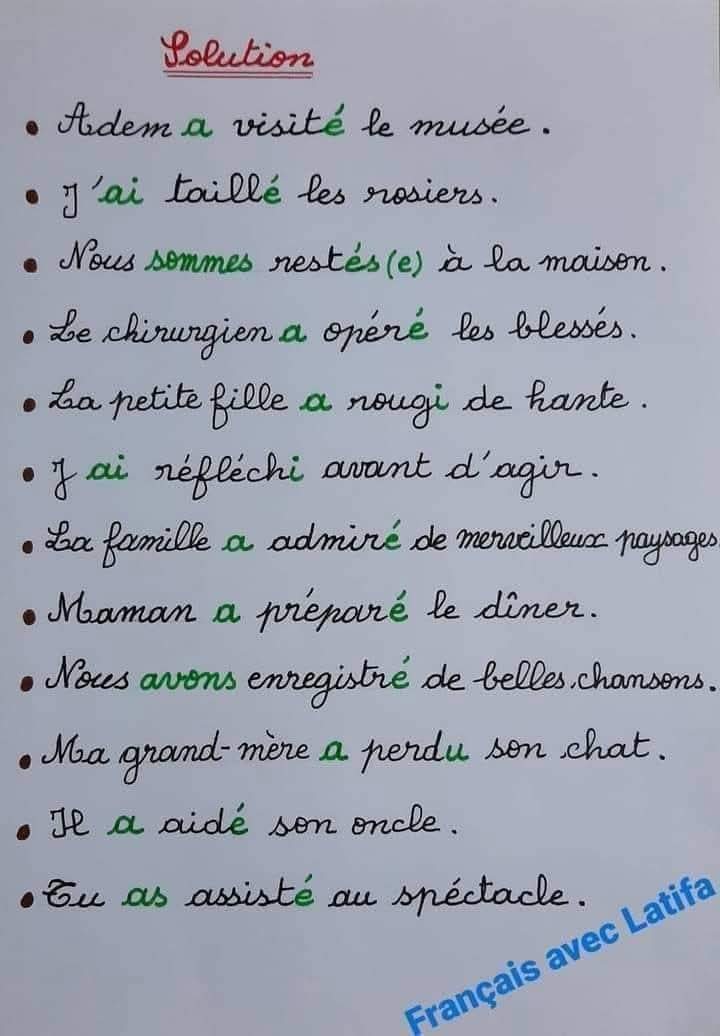 Solution
• Adem a visité le musée.
• J'ai taillé les rosiers.
• Nous sommes restés(e) à la maison.
• Le chirurgien a opéré les blessés.
• La petite fille a rougi de hante.
• J ai réfléchi avant d'agir.
• La famille a admiré de merveilleux paysages
• Maman a préparé le dîner.
• Nous avons enregistré de belles chansons.
• Ma grand-mère a perdu son chat.
• Il a aidé son oncle.
• Tu as assisté au spéctacle.
Français avec Latifa